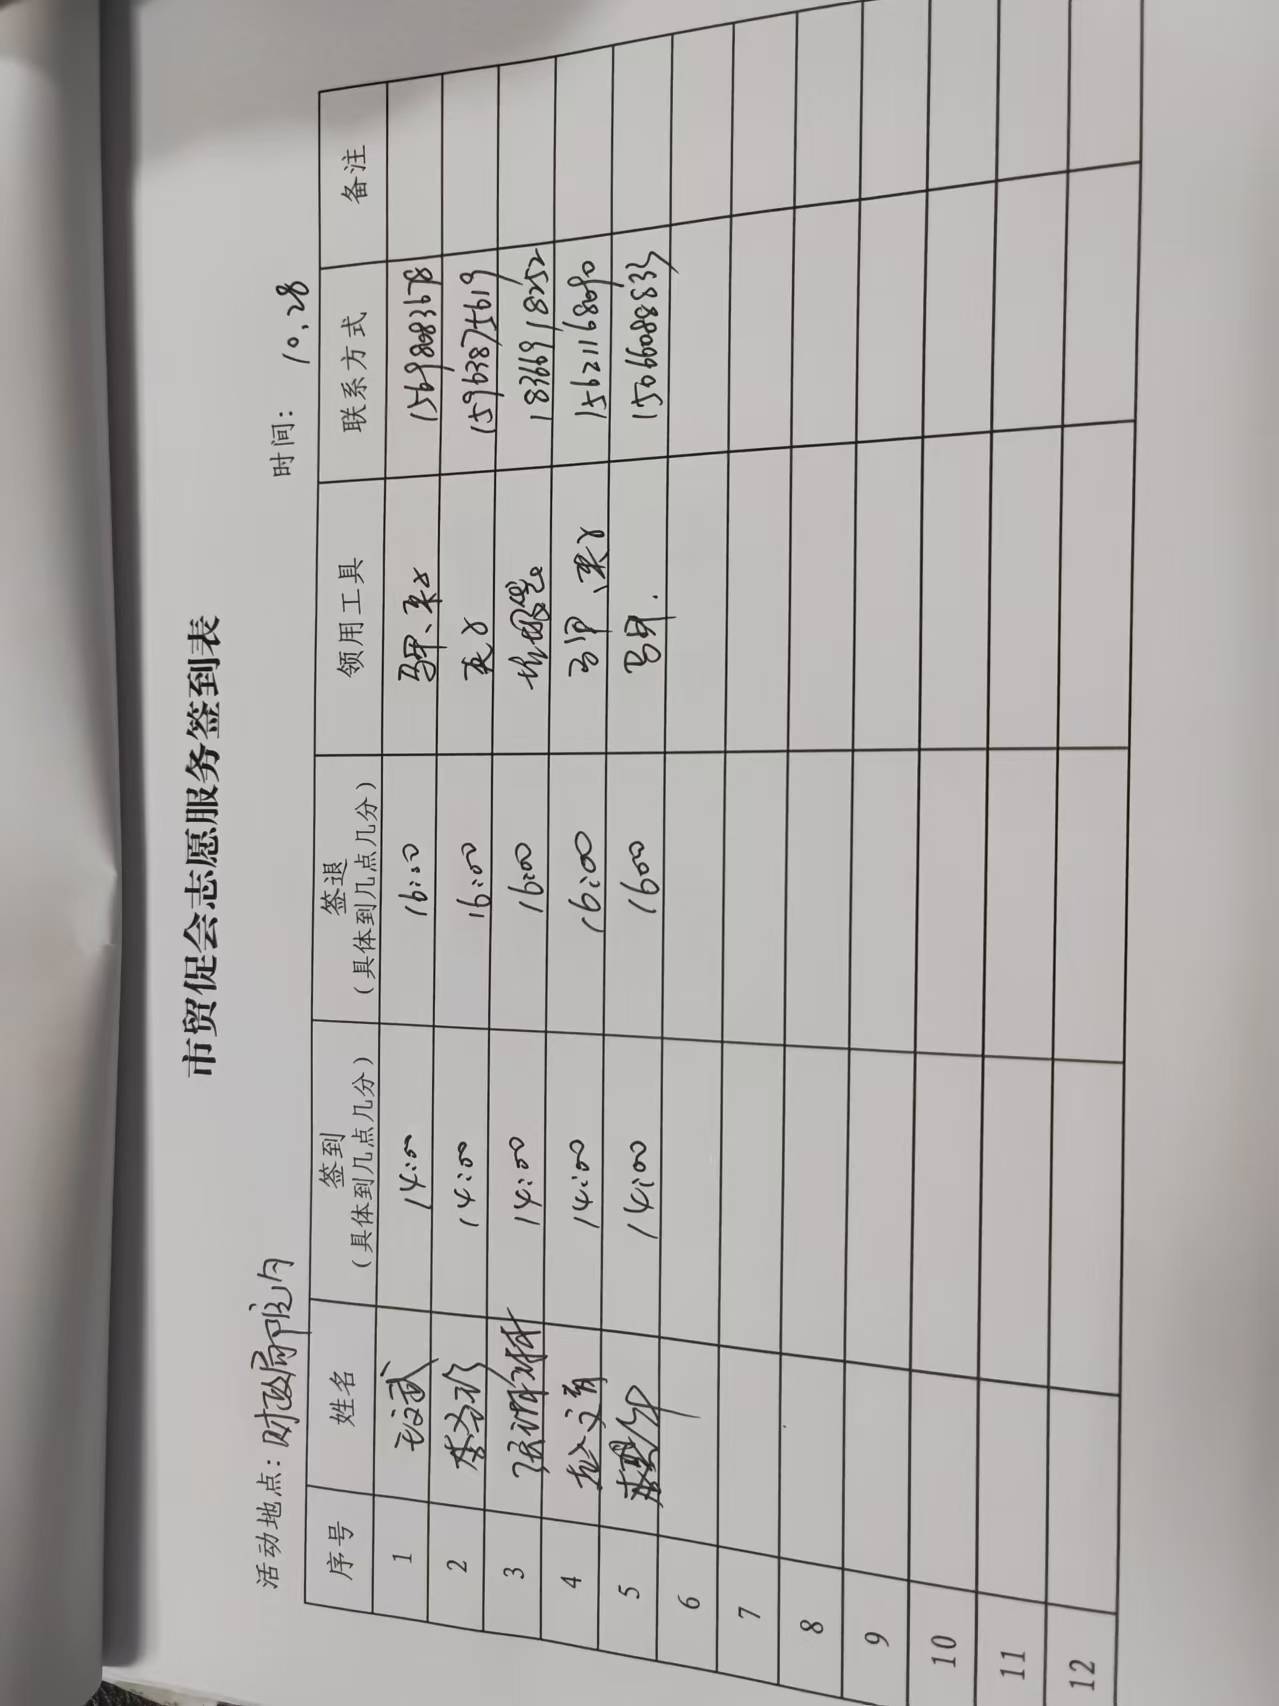 市贸促会志愿服务签到表
活动地点：财政局院内 时间：10.28
序号 姓名 签到（具体到几点几分） 签退（具体到几点几分） 领用工具 联系方式 备注
1 14:00 16:00 马甲、夹子 15698083678
2 14:00 16:00 夹子 15963875619
3 14:00 16:00 垃圾袋 18366918252
4 赵文育 14:00 16:00 马甲、夹子 15621168090
5 14:00 1600 马甲. 15066088833
6
7
8
9
10
11
12